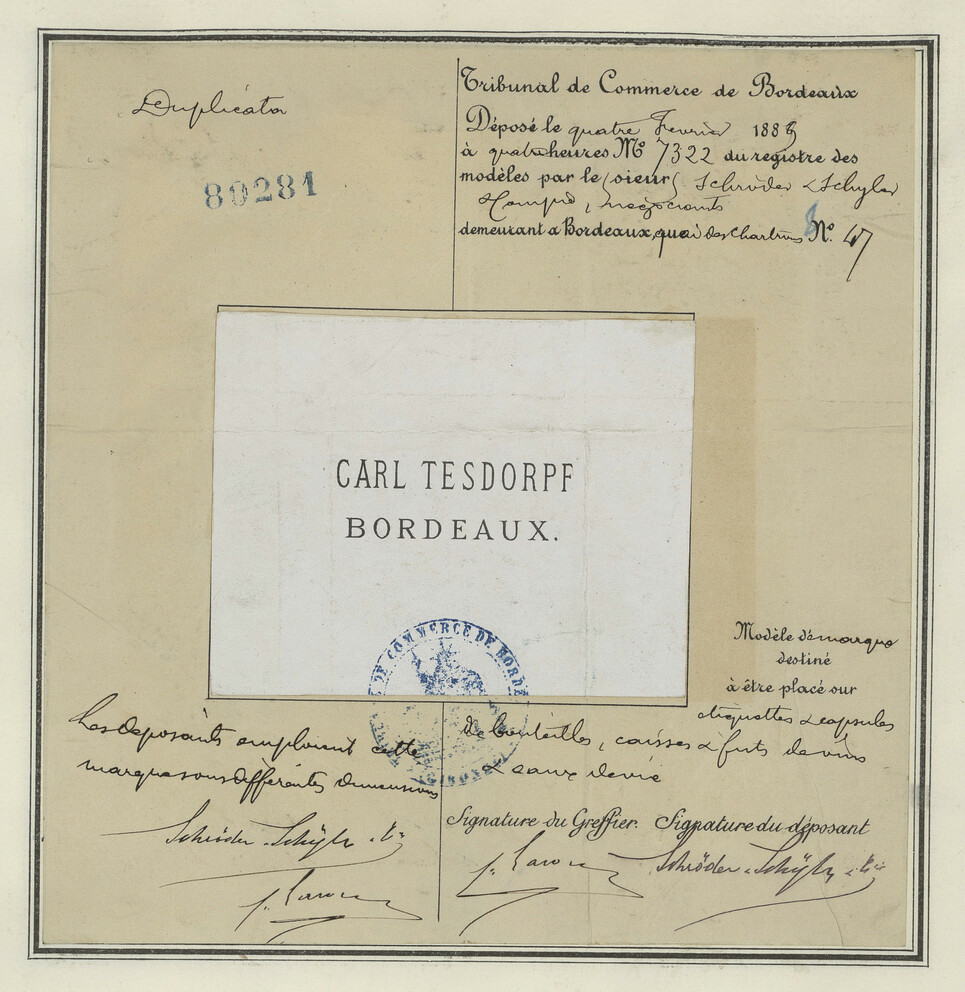 Duplicata
80281
Tribunal de Commerce de Bordeaux
Déposé le quatre Fevrier 1885
à quatre heures No 7322 du registre des
modèles par les sieurs Schröder & Schyler
& Comp, négociants
demeurant a Bordeaux, quai des Chartrons No. 47
CARL TESDORPF
BORDEAUX.
DE COMMERCE DE BORDE
Modèle de marque
destiné
à être placé sur
étiquettes & capsules
de bouteilles, caisses & futs de vins
& eaux de vie
Les deposants emploient cette
marque sous différentes dimensions
Schröder & Schÿler & Co
Signature du Greffier. Signature du déposant
Schröder & Schÿler & Co